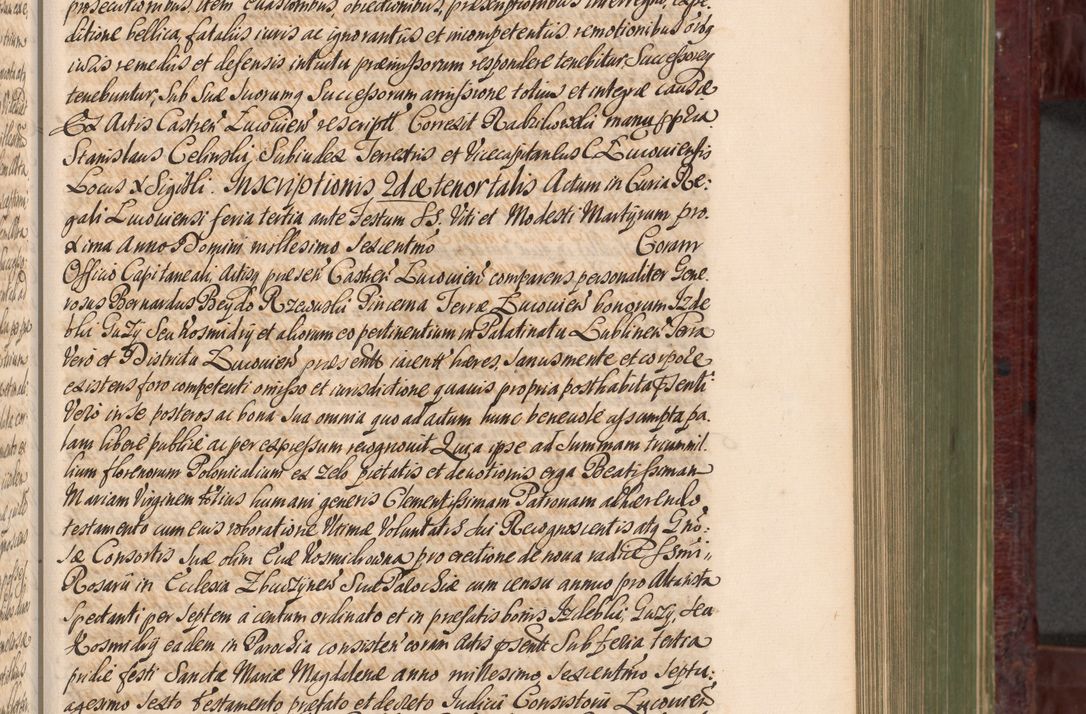 prosecutionibus, item evasionibus, obiectionibus, præemptionibus interregni, expe
ditione bellica, fatalis iuris ac ignorantiis et incompetentiis remotionibus
iuris remediis et defensis intuitu præmissorum respondere tenebitur, Successores
tenebuntur, Sub Suæ Suorumq Successorum amissione totius et integræ causæ
Ex Actis Castren Lucovien rescript Correxit Radzikowski manu ppria
Stanislaus Celinski, Subiudex Terrestris et Vicecapitaneus C Lucoviensis
Locus Sigilli. Inscriptionis 2dæ tenor talis Actum in Curia Re:
gali Lucoviensi feria tertia ante Festum SS. Viti et Modesti Martyrum pro.
xima Anno Domini millesimo Sexcentmo Coram
Officio Capitaneali, Actisq præsen Castren Lucovien comparens personaliter Gene
rosus Bernardus Beydo Rzewuski Pincerna Terræ Lucovien bonorum Izde
bki Guzy Seu Kosmidry et aliorum eo pertinentium in Palatinatu Lublinen Terra
Vero et Districtu Lucovien præsenti iacent hæres, Sanus mente et corpore
existens foro competenti omisso et iurisdictione quavis propria posthabita psenti
Vero in se posteros ac bona Sua omnia quo ad actum hunc benevole assumpta, pa
lam libere publice ac per expressum recognovit Quia ipse ad Summam trium mil
lium florenorum Polonicalium ex Zelo pietatis et devotionis erga Beatissimam
Mariam Virginem totius humani generis Clementissimam Patronam adhærendo
testamento cum eius roboratione Ultimæ Voluntatis Sui Recognoscentis atq Gno:
sæ Consortis Suæ olim Evæ Kosmidrowna pro erectione de nova radice Ssmi
Rosarii in Ecclesia Zbuczynen Suæ Parochiæ cum censu annuo pro Altarista
Spectanti per Septem a centum ordinato et in præfatis bonis Izdebki, Guzy, Seu
Kosmidry eadem in Parochia consisten coram Actis psentt Sub feria tertia
pridie festi Sanctæ Mariæ Magdalenæ anno millesimo Sexcentmo Septu
agesimo Sexto testamento præfato et decreto Judicii Consistorii Lucovien